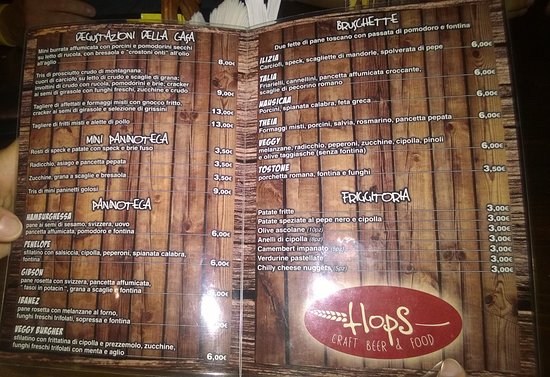 DEGUSTAZIONI DELLA CASA
Mini burrata affumicata con porcini e pomodorini secchi
su letto di rucola, con bresaola e "crostoni onti" all'olio
all'aglio 8,00€
Tris di prosciutto crudo di montagnana
cuori di carciofo su letto di crudo e scaglie di grana;
involtini di crudo con rucola, pomodorini e brie; cracker
ai semi di girasole con funghi freschi, zucchine e crudo 9,00€
Tagliere di affettati e formaggi misti con gnocco fritto,
cracker ai semi di girasole e selezione di grissini 13,00€
Tagliere di fritti misti e alette di pollo 13,00€
MINI PANINOTECA
Rosti di speck e patate con speck e brie fuso 3,50€
Radicchio, asiago e pancetta pepata 3,50€
Zucchine, grana a scaglie e bresaola 3,50€
Tris di mini paninetti golosi 9,00€
PANINOTECA
HAMBURGHESSA
pane ai semi di sesamo, svizzera, uovo
pancetta affumicata, pomodoro e fontina 6,00€
PENELOPE
sfilatino con salsiccia, cipolla, peperoni, spianata calabra,
fontina 6,00€
GIBSON
pane rosetta con svizzera, pancetta affumicata,
"fasoi in potacin", grana a scaglie e fontina 6,00€
IBANEZ
pane rosetta con melanzane al forno,
funghi freschi trifolati, sopressa e fontina 6,00€
VEGGY BURGHER
sfilatino con frittatina di cipolla e prezzemolo, zucchine,
funghi freschi trifolati con menta e aglio 6,00€
BRUSCHETTE
Due fette di pane toscano con passata di pomodoro e fontina
ILIZIA
Carciofi, speck, scagliette di mandorle, spolverata di pepe 6,00€
TALIA
Friarielli, cannellini, pancetta affumicata croccante,
scaglie di pecorino romano 6,00€
NAUSICAA
porcini, spianata calabra, feta greca 6,00€
THEIA
Formaggi misti, porcini, salvia, rosmarino, pancetta pepata 6,00€
VEGGY
melanzane, radicchio, peperoni, zucchine, cipolla, pinoli
e olive taggiasche (senza fontina) 6,00€
TOSTONE
porchetta romana, fontina e funghi 6,00€
FRIGGITORIA
Patate fritte 3,00€
Patate speziate al pepe nero e cipolla 3,00€
Olive ascolane (10pz) 3,00€
Anelli di cipolla (8pz) 3,00€
Camembert impanato (5pz) 3,00€
Verdurine pastellate 3,00€
Chilly cheese nuggets (5pz) 3,00€
Hops
CRAFT BEER & FOOD